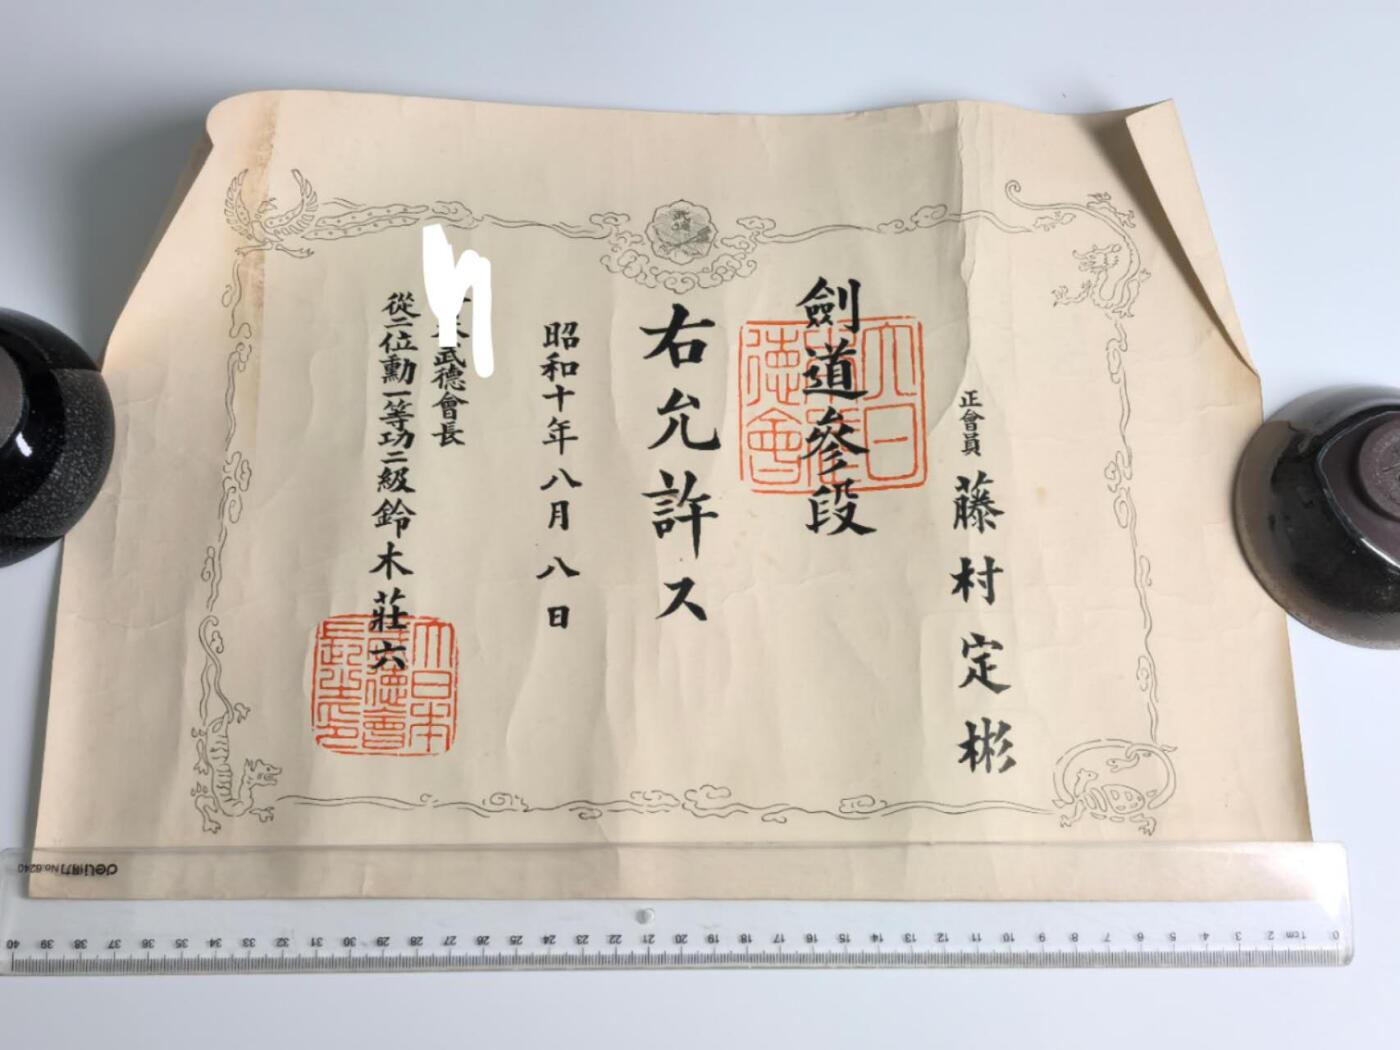 正會員 藤村定彬
劍道參段
大日本武德會
右允許ス
昭和十年八月八日
武德會長
從二位勳一等功二級鈴木莊六
大日本武德會
武德
deli得力 No.6240
0 1cm 2 3 4 5 6 7 8 9 10 11 12 13 14 15 16 17 18 19 20 21 22 23 24 25 26 27 28 29 30 31 32 33 34 35 36 37 38 39 40